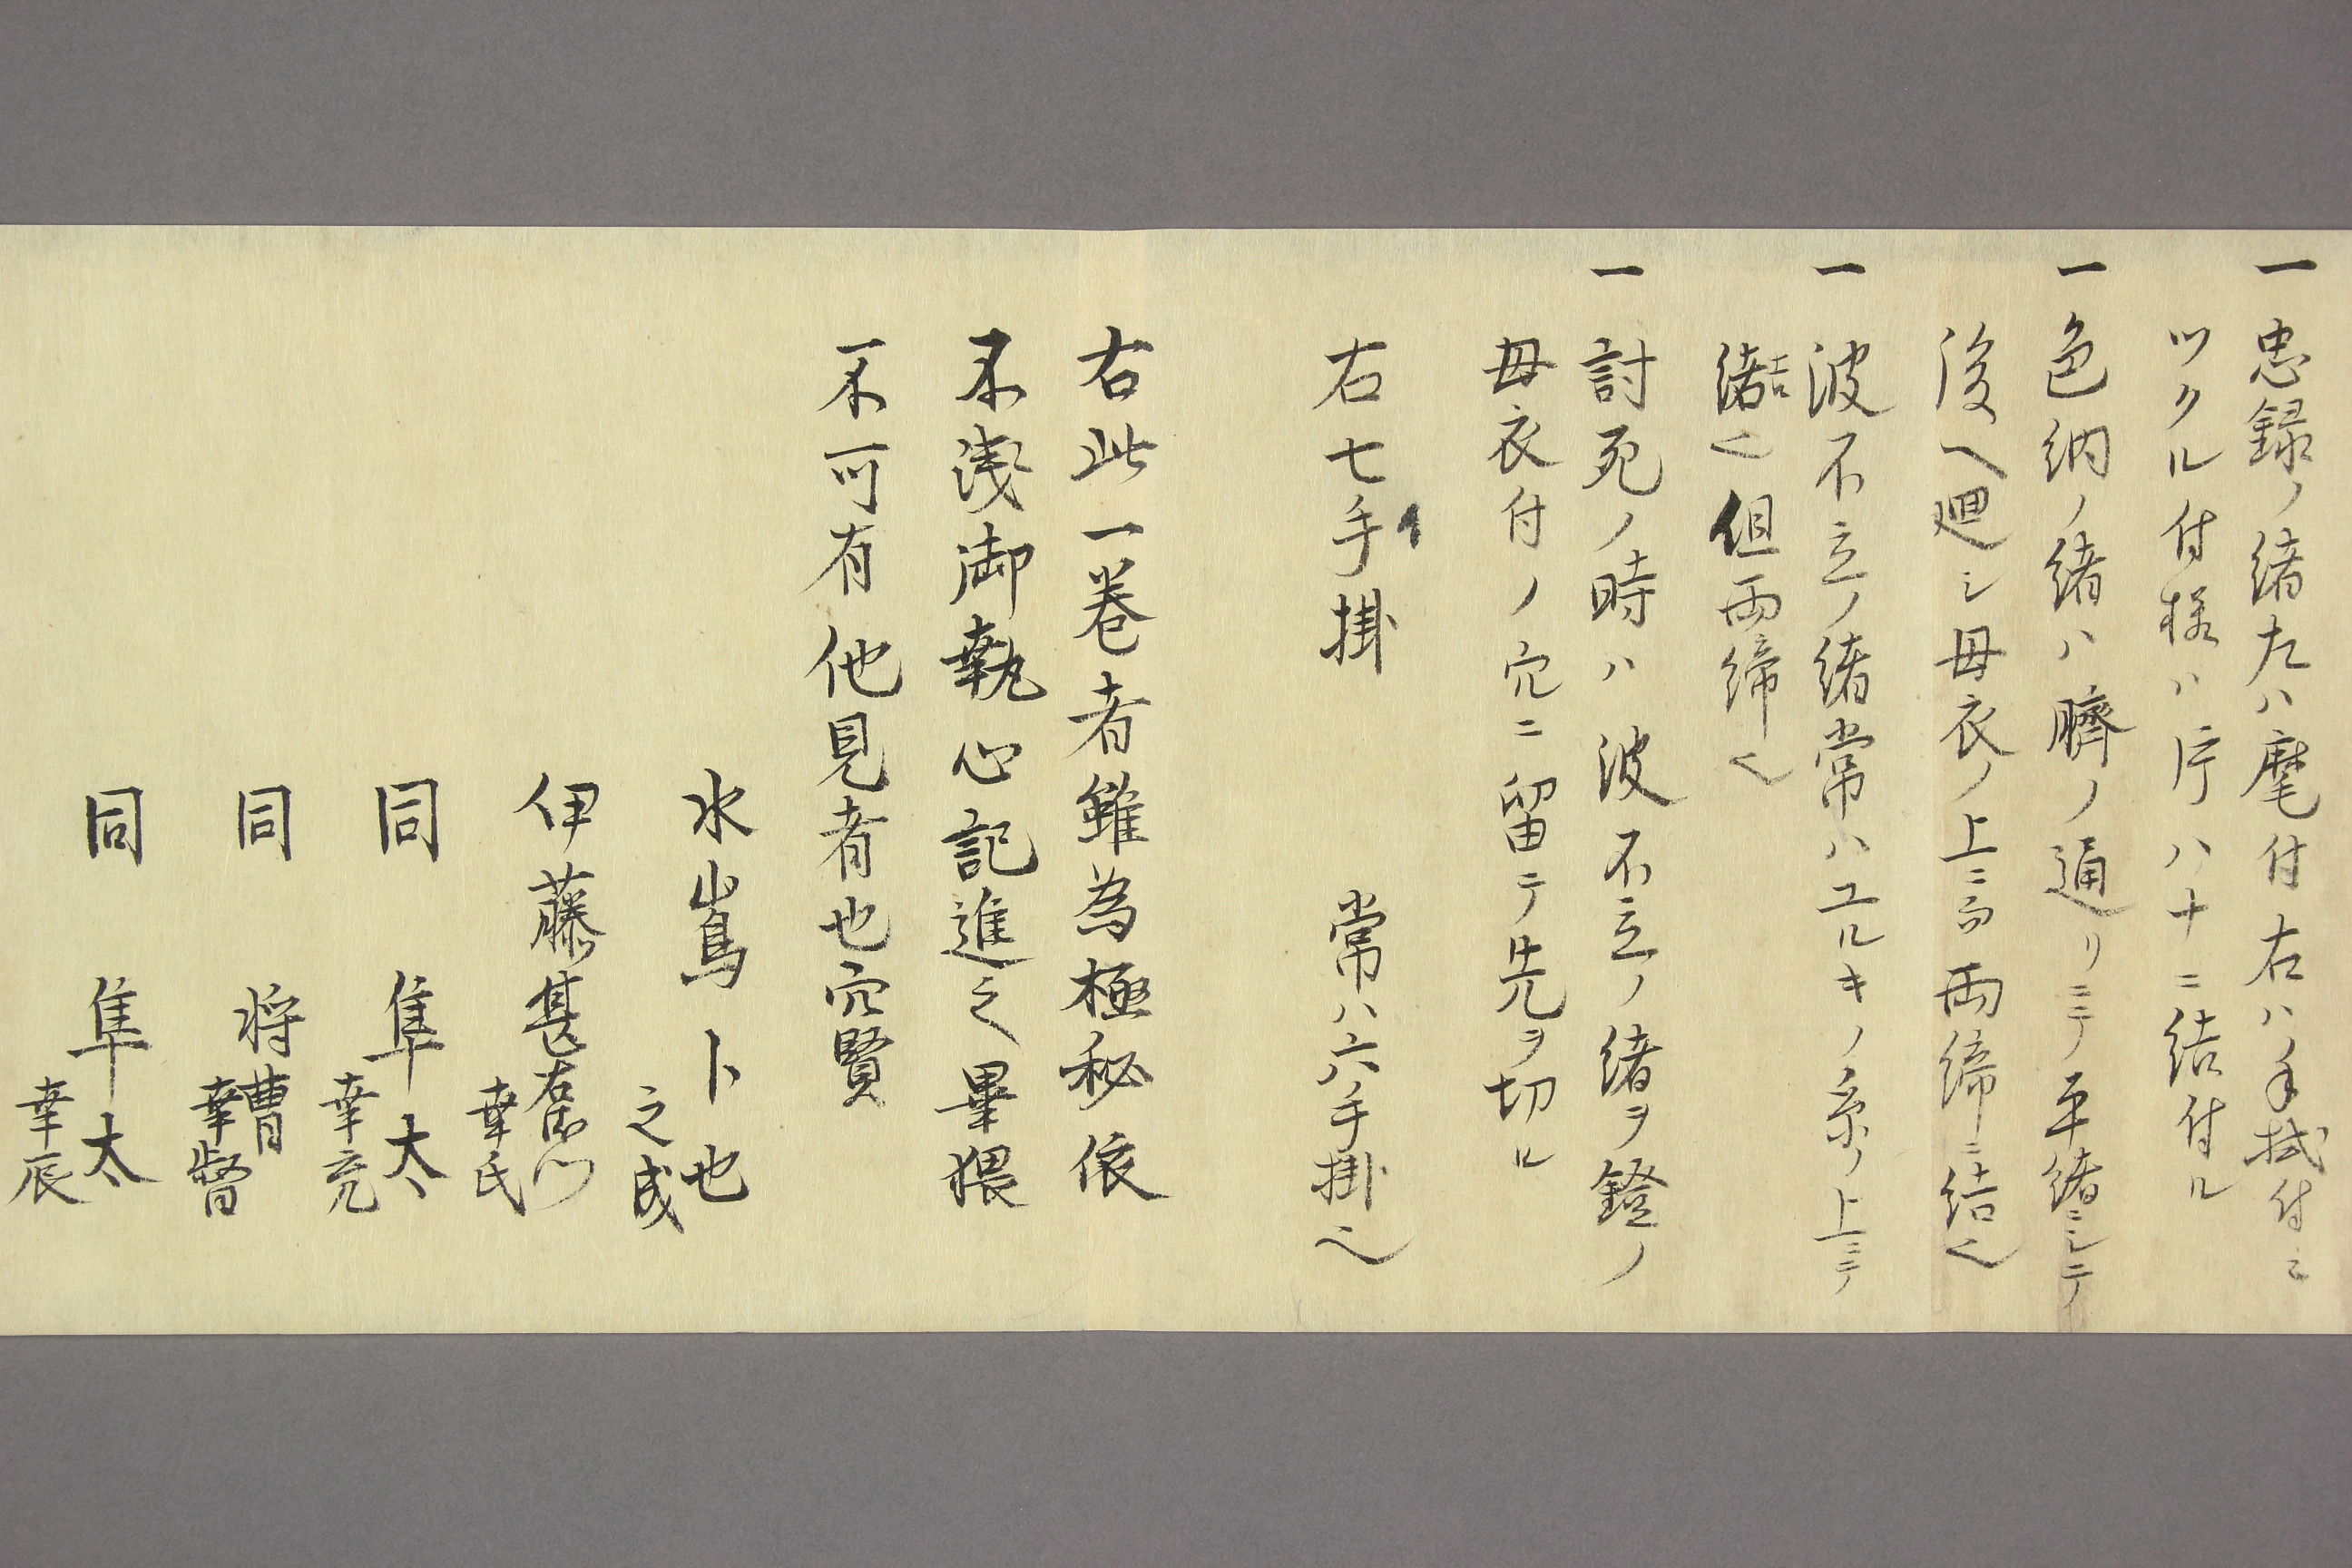 一忠録ノ緒左ハ麾付右ハ手拭付ニ
ツクル付様ハ片ハナニ結付ル
一色納ノ緒ハ臍ノ通リニテ平緒ニシテ
後ヘ廻シ母衣ノ上ニ而両締ニ結也
一波不立ノ緒常ハユルキノ糸ノ上ニテ
結也但両締也
一討死ノ時ハ波不立ノ緒ヲ鐙ノ
母衣付ノ穴ニ留テ先ヲ切ル
右七手掛 常ハ六手掛也
右此一巻者雖為極秘依
不浅御執心記進之畢猥
不可有他見者也穴賢
水嶌卜也
之成
伊藤甚右衛門
幸氏
同 隼太
幸充
同 将曹
幸督
同 隼太
幸辰